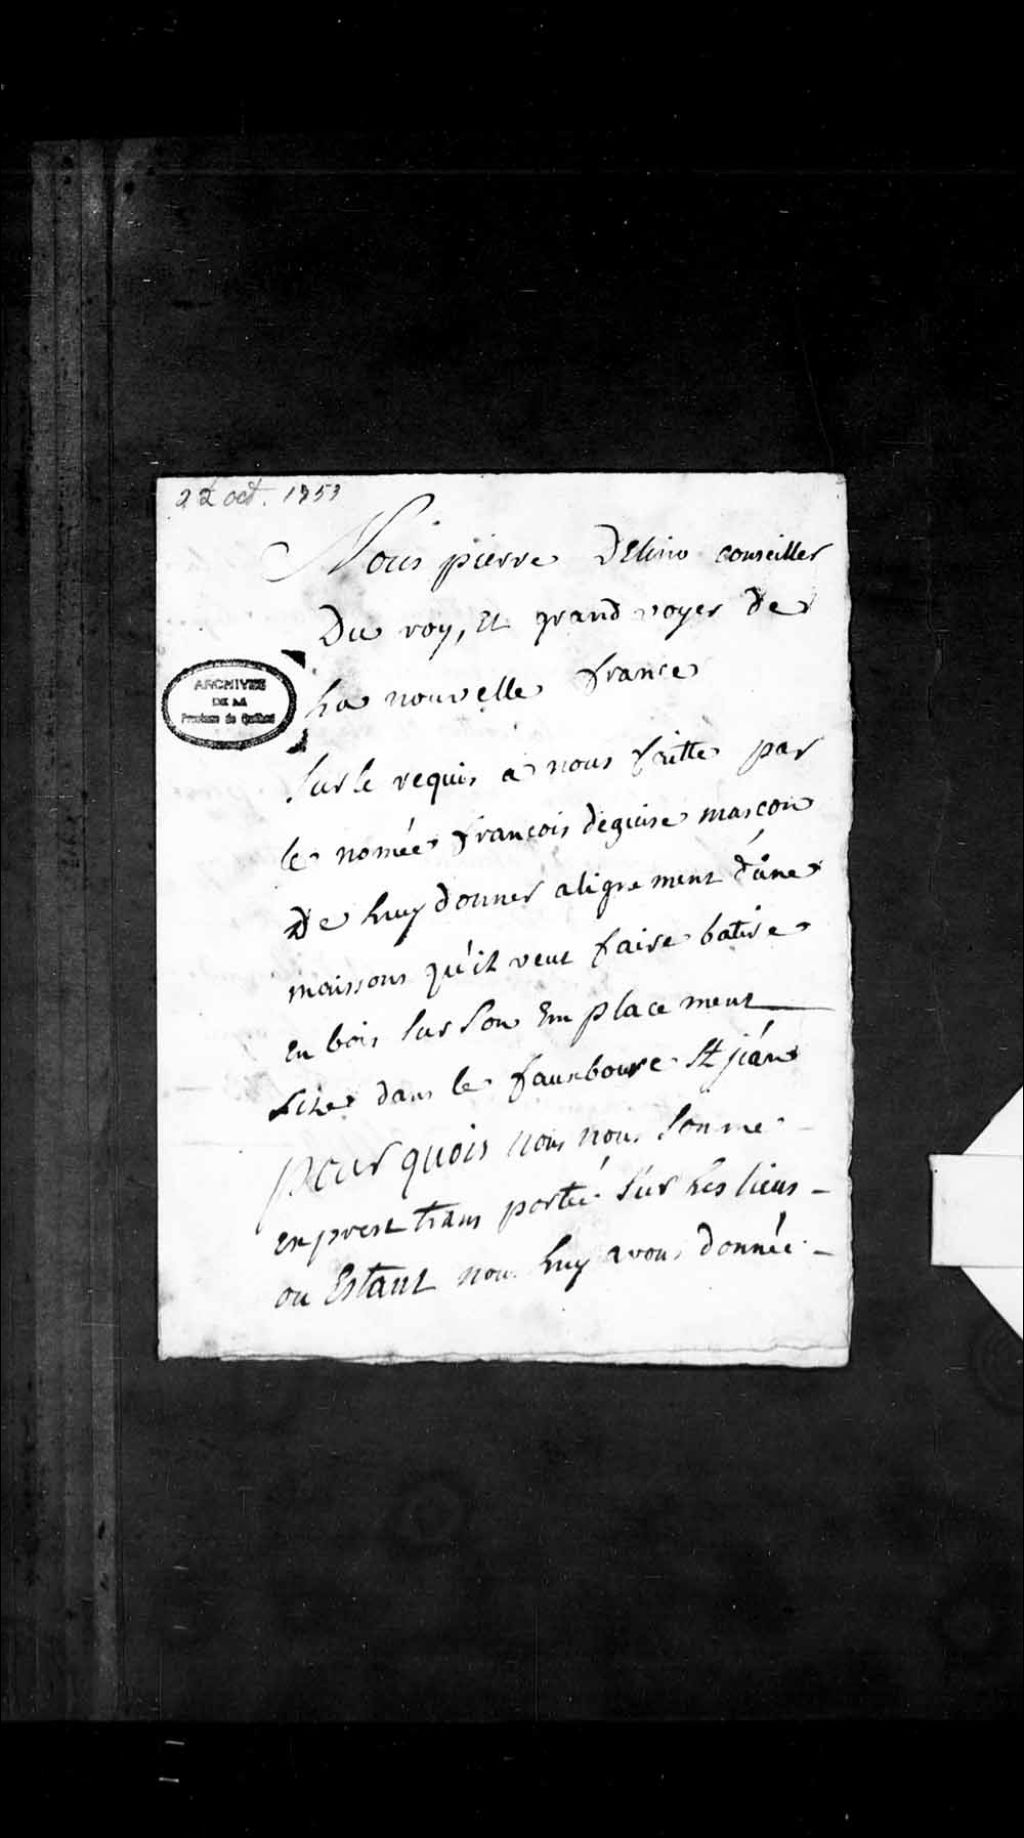 22 oct. 1753
Nous pierre Delino conseiller
Du roy, Et grand voyer de
La nouvelle france
ARCHIVES
DE LA
Province de Québec
Sur le requis a nous faitte par
le nomée francois deguise mascon
De Luy donner aligne ment d'une
maissons qu'il veut faire batire
En bois Sur Son Em place ment
Size dans le fauxbourc St jéan
pour quois nous nous Somme
Exprest trans portée Sur Les lieux
ou Estant nous Luy avons donnée